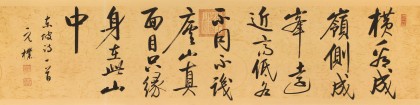 橫看成
嶺側成
峯遠
近高低各
不同不識
廬山真
面目只緣
身在此山
中
東坡詩一首